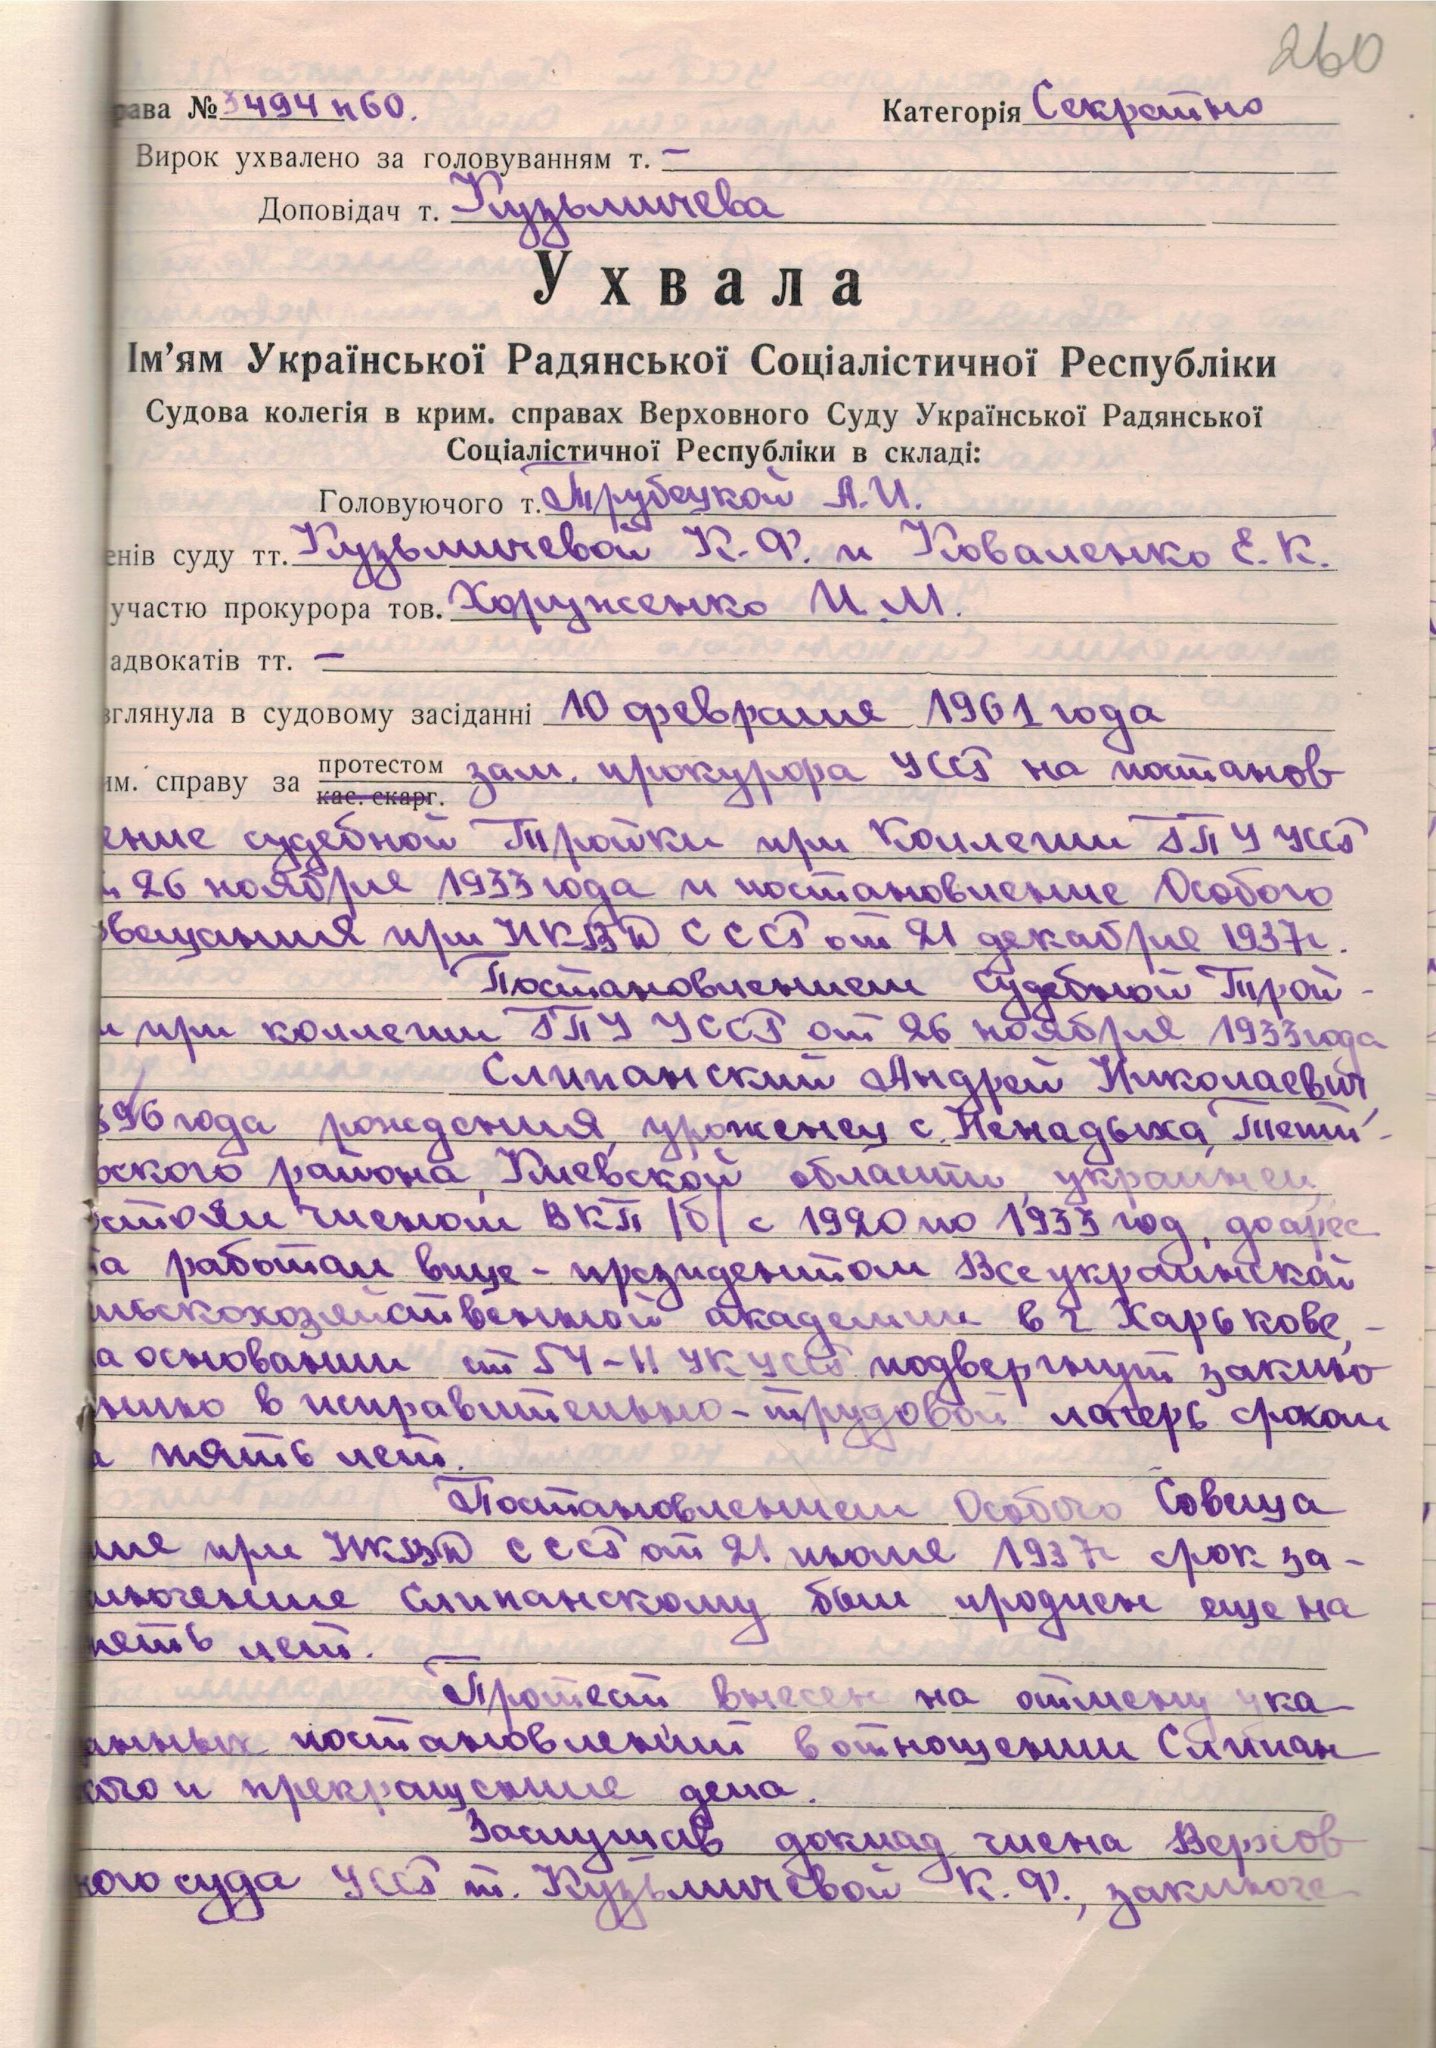 260
рава № 3494 п60.
Категорія Секретно
Вирок ухвалено за головуванням т. –
Доповідач т. Кузьмичева
Ухвала
Ім’ям Української Радянської Соціалістичної Республіки
Судова колегія в крим. справах Верховного Суду Української Радянської
Соціалістичної Республіки в складі:
Головуючого т. Трубецкой А.И.
енів суду тт. Кузьмичевой К.Ф. и Коваленко Е.К.
участю прокурора тов. Хоруженко И.М.
адвокатів тт. –
зглянула в судовому засіданні 10 февраля 1961 года
им. справу за протестом кас. скарг. зам. прокурора УССР на постанов
ение судебной Тройки при Коллегии ГПУ УССР
т 26 ноября 1933 года и постановление Особого
овещания при НКВД СССР от 21 декабря 1937г.
Постановлением судебной Трой-
и при коллегии ГПУ УССР от 26 ноября 1933 года
Слипанский Андрей Николаевич
896 года рождения, уроженец с. Ненадыха, Тети-
ьского района, Киевской области, украинец,
остоял членом ВКП/б/ с 1920 по 1933 год, до арес
та работал вице-президентом Всеукраинской
льскохозяйственной академии в г. Харькове, -
а основании ст 54-11 УК УССР подвергнут заклю
ению в исправительно-трудовой лагерь сроком
а пять лет.
Постановлением Особого Совеща
ния при НКВД СССР от 21 июля 1937г срок за-
лючение Слипанскому был продлен еще на
пять лет.
Протест внесен на отмену ука
анных постановлений в отношении Слипан
кого и прекращение дела.
Заслушав доклад члена Верхов
ного суда УССР т. Кузьмичевой К.Ф., заключе